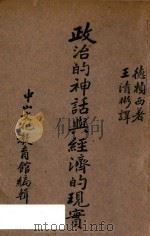 西著
王清彬譯
政治的神話與經濟的現實
中山教育館編輯